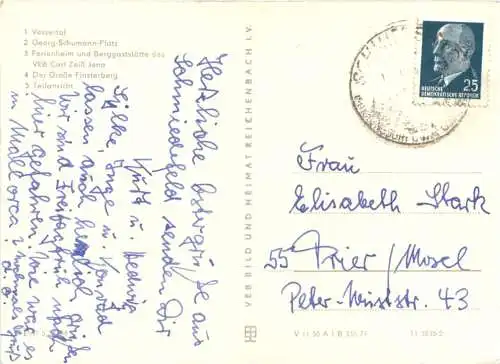 1 Vessertal
2 Georg-Schumann-Platz
3 Ferienheim und Berggaststätte des
VEB Carl Zeiß Jena
4 Der Große Finsterberg
5 Teilansicht
Herzliche Ostergrüße aus
Schmiedefeld senden Dir
Kurt u. Hedwig
Silke, Inge u. Konrad
lassen auch herzlich grüßen
Wir sind Freitag früh
hier gefahren. Wie war es
in Mallorca?
VEB BILD UND HEIMAT REICHENBACH I. V.
DEUTSCHE
DEMOKRATISCHE REPUBLIK
25
Frau
Elisabeth Stark
55 Trier/Mosel
Peter-Wust-str. 43
V 11 50 A 1 B